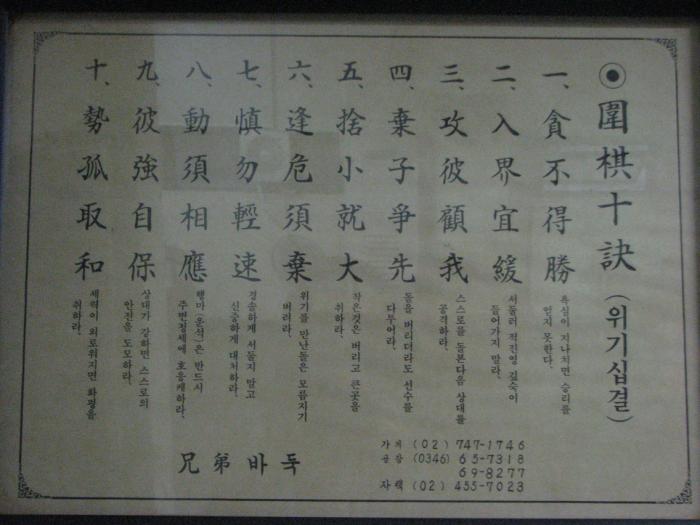 ◉ 圍棋十訣 (위기십결)
一、貪不得勝
욕심이 지나치면 승리를
얻지 못한다.
二、入界宜緩
서둘러 적진영 깊숙이
들어가지 말라.
三、攻彼顧我
스스로를 돌본다음 상대를
공격하라.
四、棄子爭先
돌을 버리더라도 선수를
다투어라.
五、捨小就大
작은것은 버리고 큰곳을
취하라.
六、逢危須棄
위기를 만난돌은 모름지기
버려라.
七、慎勿輕速
경솔하게 서둘지 말고
신중하게 대처하라.
八、動須相應
행마(운석)은 반드시
주변정세에 호응케하라.
九、彼強自保
상대가 강하면 스스로의
안전을 도모하라.
十、勢孤取和
세력이 외로워지면 화평을
취하라.
가게 (02) 747-1746
공장 (0346) 65-7318
69-8277
자택 (02) 455-7023
兄弟바둑